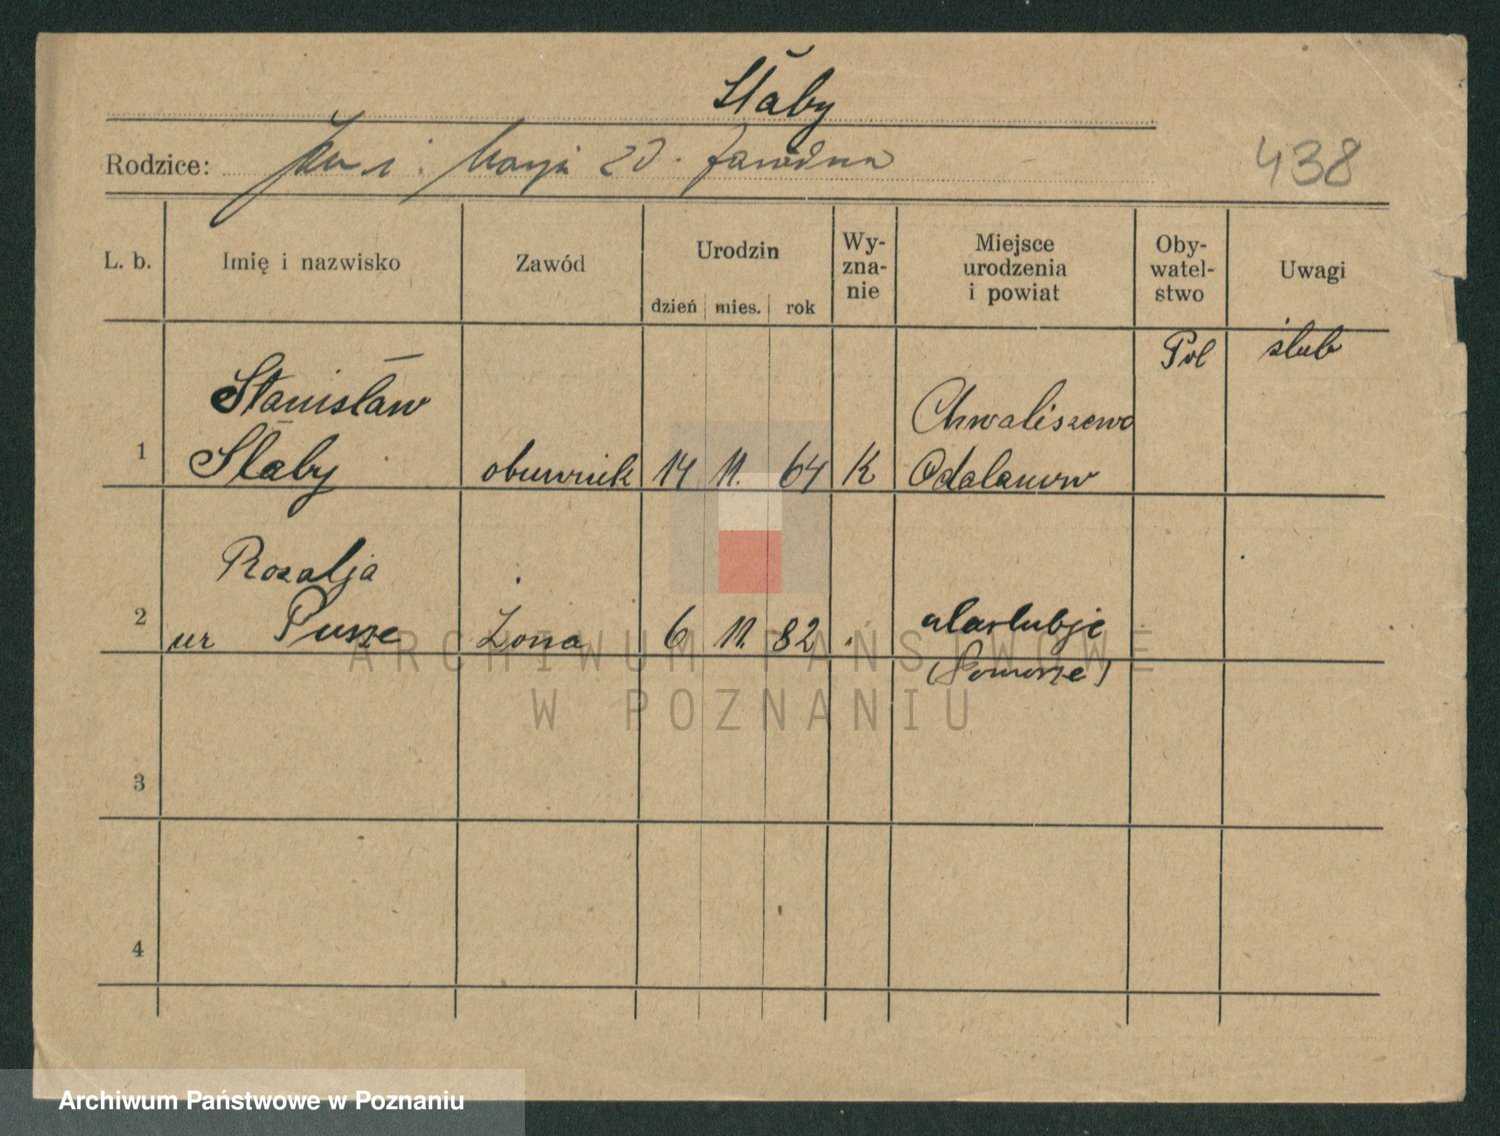 Słaby
Rodzice: Jan i Marja zd.
438
L. b. Imię i nazwisko Zawód Urodzin dzień mies. rok Wy-zna-nie Miejsce urodzenia i powiat Oby-watel-stwo Uwagi
Pol ślub
Stanisław Chwaliszewo
1 Słaby obuwnik 14 11. 64 K Odolanow
Rozalja
2 ur Pusze Żona 6 11. 82 "
(Pomorze)
3
4
ARCHIWUM PAŃSTWOWE
W POZNANIU
Archiwum Państwowe w Poznaniu